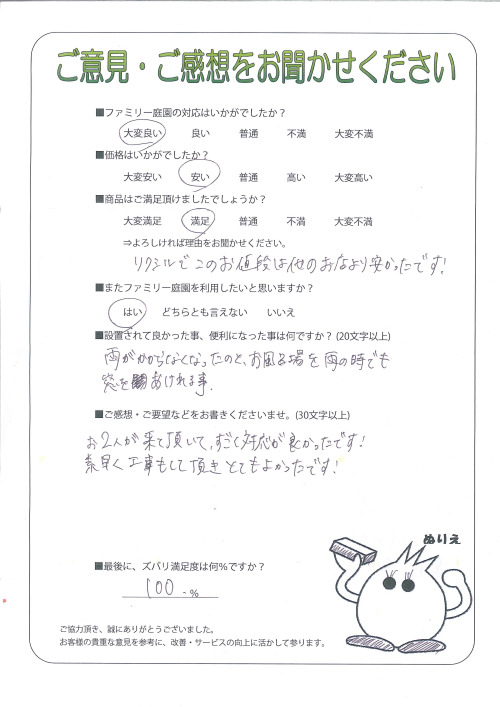 ご意見・ご感想をお聞かせください
■ファミリー庭園の対応はいかがでしたか？
大変良い 良い 普通 不満 大変不満
■価格はいかがでしたか？
大変安い 安い 普通 高い 大変高い
■商品はご満足頂けましたでしょうか？
大変満足 満足 普通 不満 大変不満
⇒よろしければ理由をお聞かせください。
リクシルでこのお値段は他のお店より安かったです！
■またファミリー庭園を利用したいと思いますか？
はい どちらとも言えない いいえ
■設置されて良かった事、便利になった事は何ですか？(20文字以上)
雨がかからなくなったのと、お風呂場を雨の時でも
窓をあけれる事.
■ご感想・ご要望などをお書きくださいませ。(30文字以上)
お2人が来て頂いて、すごく対応が良かったです！
素早く工事もして頂きとてもよかったです！
ぬりえ
■最後に、ズバリ満足度は何％ですか？
100 ％
ご協力頂き、誠にありがとうございました。
お客様の貴重な意見を参考に、改善・サービスの向上に活かして参ります。